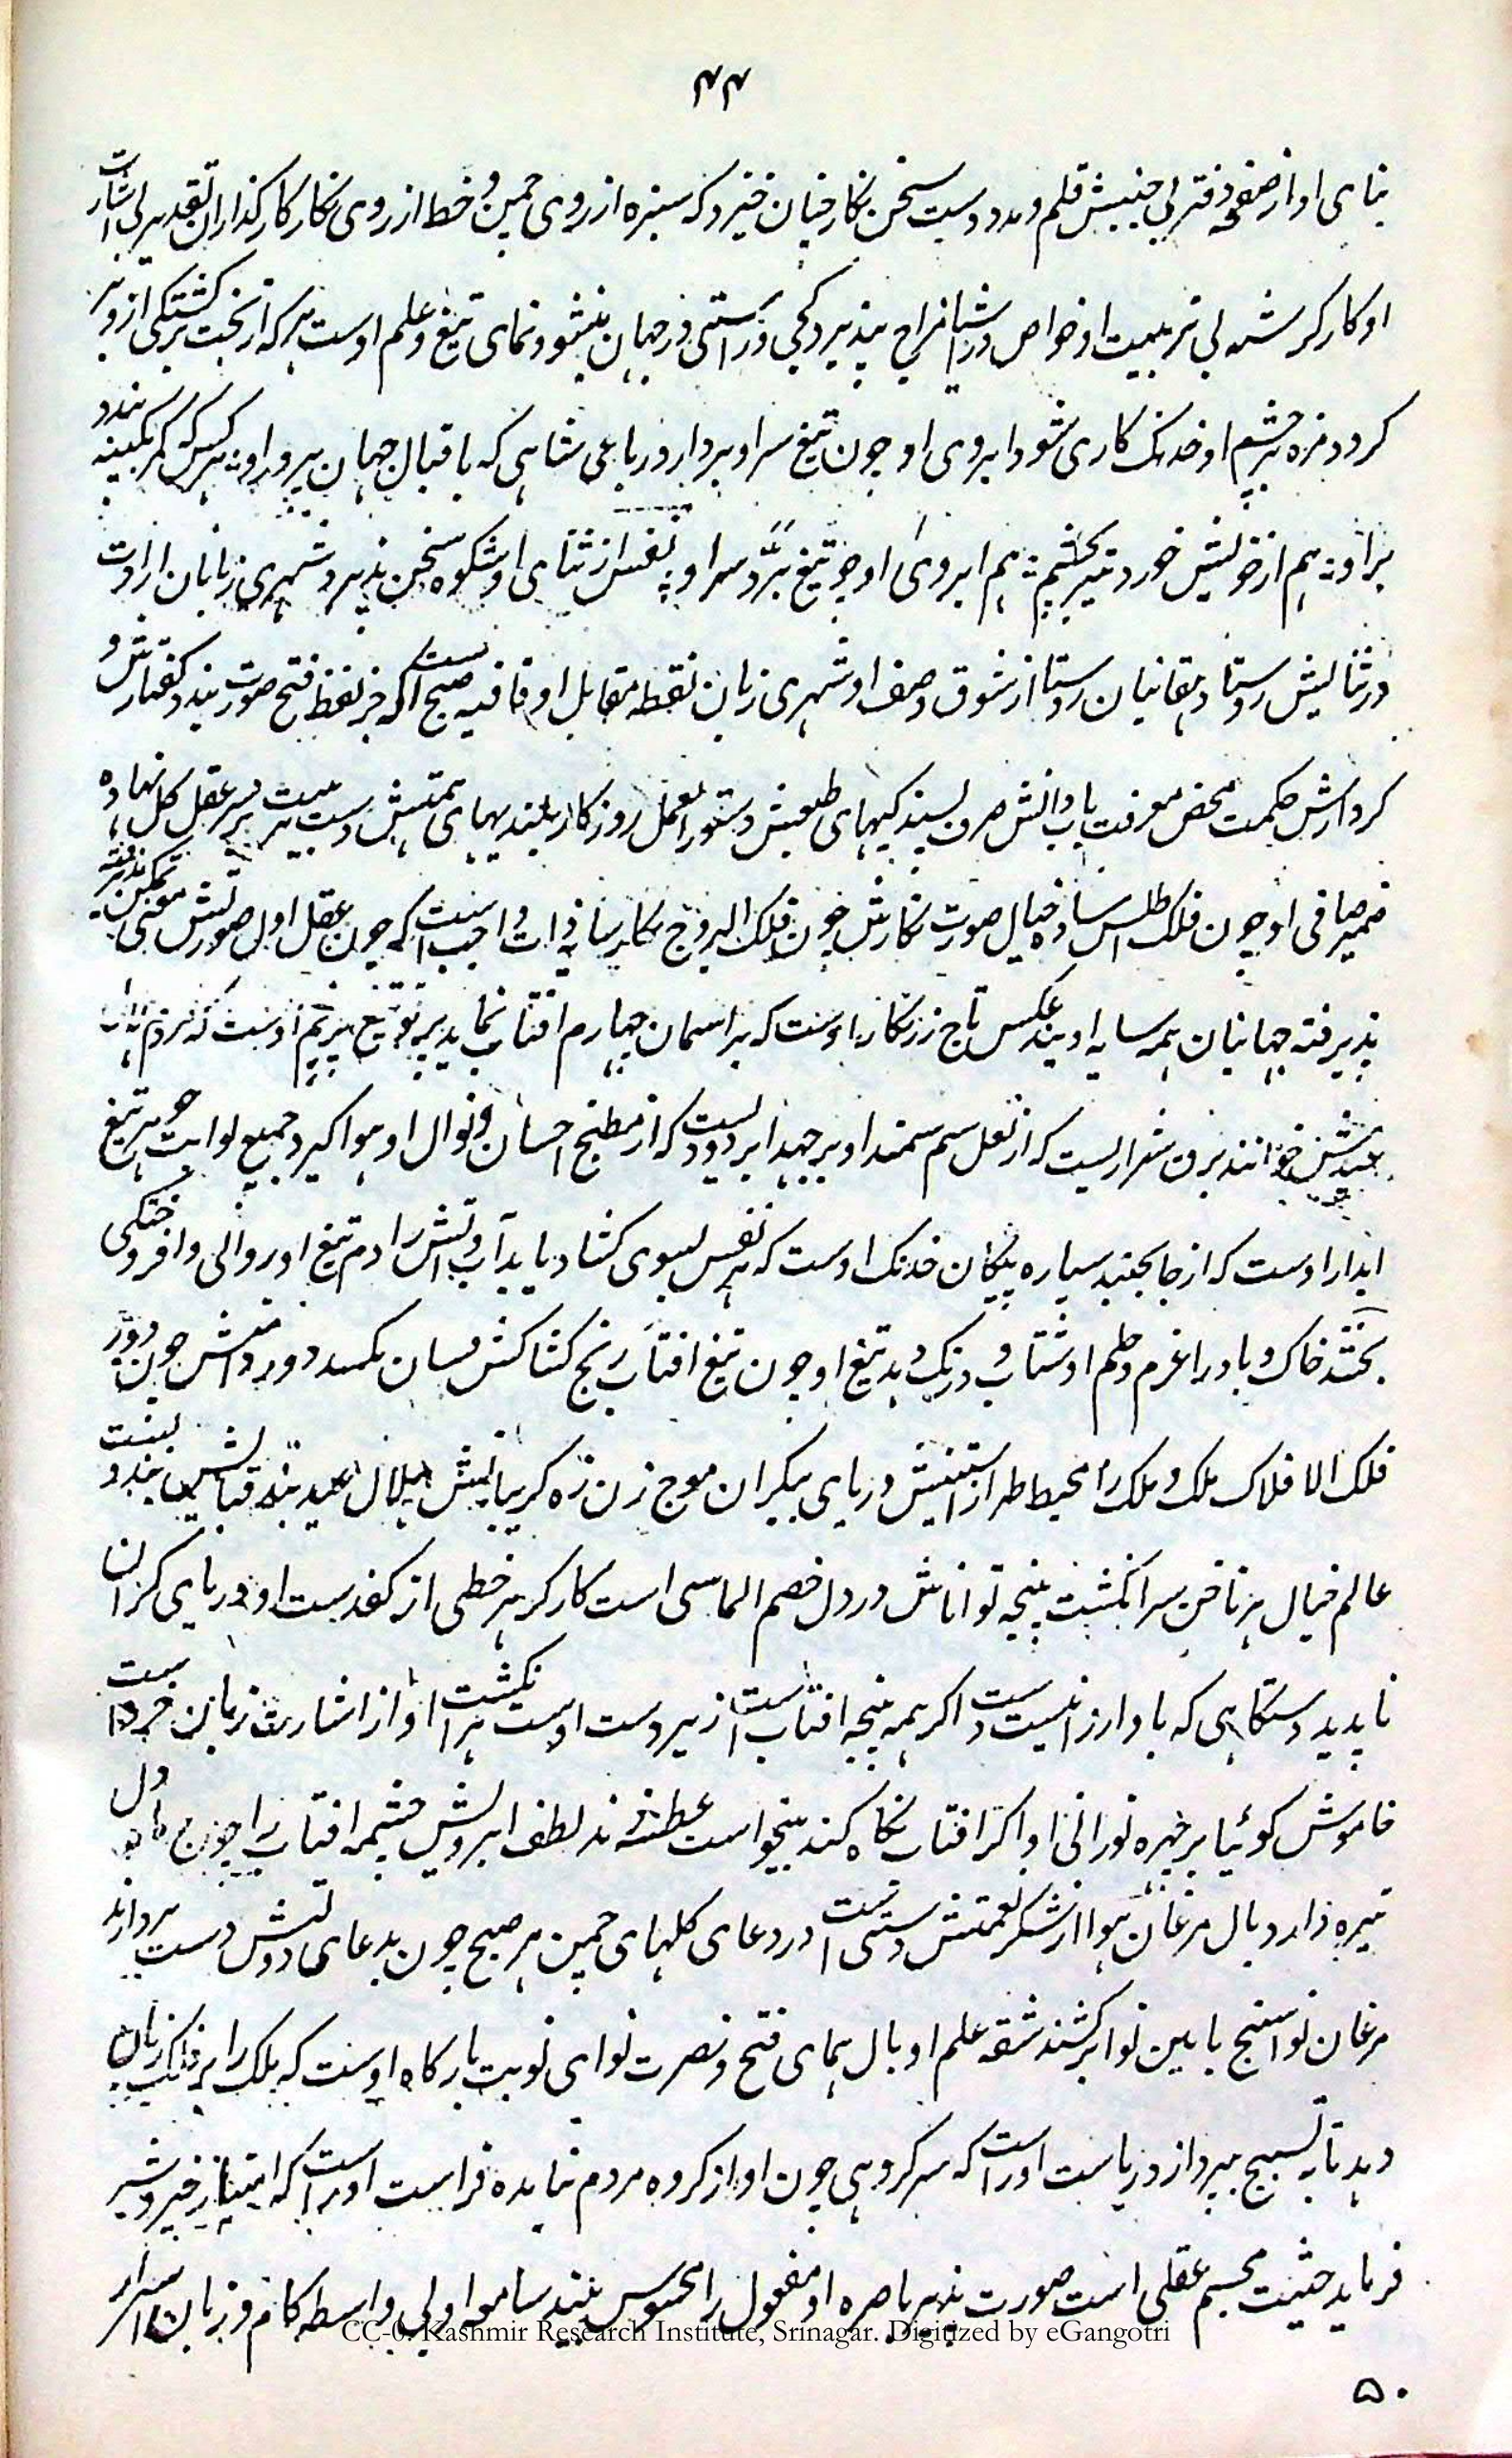 ۴۴
ثنای او از صفحه دفتر بی جنبیش قلم و مدد دست سخن نکار چنان خیزد که سبزه از روی چمن و خط از روی نکار کارکذاران تقدیر بی اشارت
او کار کر شمه بی تربیت او خواص در اشیا مزاج پذیرد کجی و راستی در جهان نشو و نمای تیغ و علم اوست هر که از بخت برکشتکی از و بر
کرد و مژه بر چشم او خدنک کاری شود ابروی او چون تیغ سر او بردارد رباعی شاهی که باقبال جهان پرور او هر کس که کمر بکینه بندد
بر او هم از خویش خورد تیر بچشم هم ابروی او چو تیغ برد سر او نفس از ثنای او شکوه سخن پذیرد شهری زبانان ارادت
در ثنایش روستا دهقانیان روستا از شوق وصف او شهری زبان نقطه مقابل او قافیه صبح است که جز لفظ فتح صورت نبندد کفتارش و
کردارش حکمت محض معرفت یاب دانش صرف پسندیکیهای طبعش دستور العمل روزکار بلندیهای همتش دست بر سر عقل کل نهاده
ضمیر صافی او چون فلک اطلس ساده خیال صورت نکارش چون فلک البروج نکار سایه ذات واجب است که چون عقل اول صورتش معنی
پذیرفته جهانیان همه سایه اویند عکس تاج زرنکار اوست که بر اسمان چهارم افتاب نماید پرتو تیغ اوست که مردم
عیدش خوانند برق شراریست که از نعل سم سمند او بر جهد ابر دودیست که از مطبخ احسان و نوال او هوا کیرد جمیع ثوابت جوهر تیغ
ابدار اوست که از جا بجنبد سیاره پیکان خدنک اوست که هر نفس بسوی کشاد یابد آب و اتش را دم تیغ او روانی و افروختکی
بخشد خاک و باد را عزم و حلم او شتاب و درنک دهد تیغ او چون تیغ افتاب رنج کشاکش فسان نکشد دور دامنش چون دور
فلک الافلاک ملک و ملک را محیط طراز استینش دریای بیکران موج زن زه کریبانش هلال عید بند قبایش
عالم خیال هر ناخن سر انکشت پنجه تواناش در دل خصم الماسی است کارکر هر خطی از کف دست او دریای کران
ناپدید دستکاهی که باد ارزانیست اکر همه پنجه افتاب است زیر دست اوست هر انکشت او از اشارت زبان خرد است
خاموش کوئیا بر چهره نورانی او اکر افتاب نکاه کند بیخواست عطسه زند لطف ابرویش چشمه افتاب را چون دل
تیره دارد بال مرغان هوا از شکر نعمتش دستی است در دعای کلهای چمن هر صبح چون بدعای دولتش دست بردارند
مرغان نواسنج بامین نوا برکشند شقه علم او بال همای فتح و نصرت نوای نوبت بارکاه اوست که ملک را بر فلک زبان
دهد تا به تسبیح پردازد ریاست او راست که سر کروهی چون او از کروه مردم نماید فراست او راست که امتیاز خیر و شر
فرماید حیثیت مجسم عقلی است صورت پذیر باصره او معقول را محسوس بیند سامعه او بی واسطه کام و زبان اسرار
CC-0. Kashmir Research Institute, Srinagar. Digitized by eGangotri
۵۰